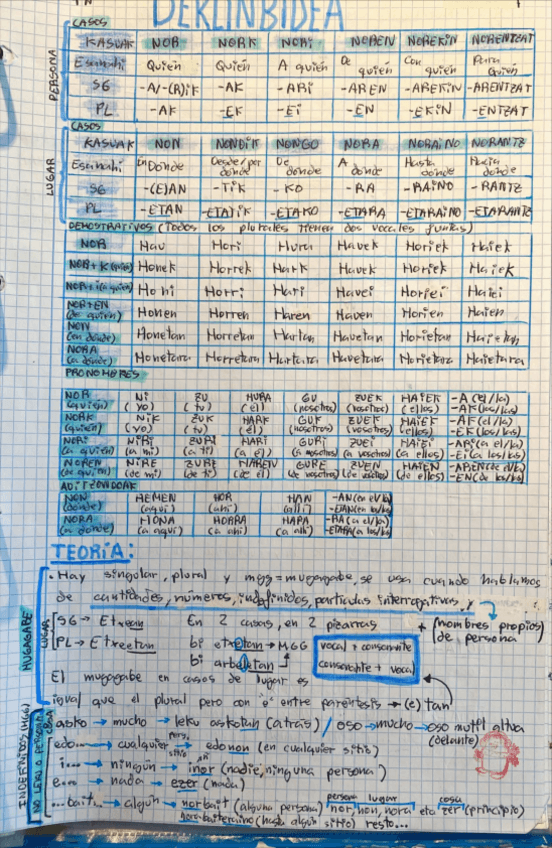 DEKLINBIDEA
CASOS
KASUAK NOR NORK NORI NOREN NOREKIN NORENTZAT
Esanahi Quién Quién A quién De quién Con quién Para Quién
SG -A/-(R)IK -AK -ARI -AREN -AREKIN -ARENTZAT
PL -AK -EK -EI -EN -EKIN -ENTZAT
PERSONA
CASOS
KASUAK NON NONDIK NONGO NORA NORAINO NORANTZ
Esanahi En Donde Desde/por donde De donde A donde Hasta donde Hacia donde
SG -(E)AN -TIK -KO -RA -RAINO -RANTZ
PL -ETAN -ETATIK -ETAKO -ETARA -ETARAINO -ETARANTZ
LUGAR
DEMOSTRATIVOS (Todos los plurales tienen dos vocales juntas)
NOR Hau Hori Hura Hauek Horiek Haiek
NOR+K (quien) Honek Horrek Hark Hauek Horiek Haiek
NOR+I (a quien) Honi Horri Hari Hauei Horiei Haiei
NOR+EN (de quien) Honen Horren Haren Hauen Horien Haien
NON (en donde) Honetan Horretan Hartan Hauetan Horietan Haietan
NORA (a donde) Honetara Horretara Hartara Hauetara Horietara Haietara
PRONOMBRES
NOR (quién) NI (yo) ZU (tu) HURA (él) GU (nosotros) ZUEK (vosotros) HAIEK (ellos) -A (el/la) -AK (los/las)
NORK (quién) NIK (yo) ZUK (tu) HARK (él) GUK (nosotros) ZUEK (vosotros) HAIEK (ellos) -AK (el/la) -EK (los/las)
NORI (a quién) NIRI (a mi) ZURI (a ti) HARI (a él) GURI (a nosotros) ZUEI (a vosotros) HAIEI (a ellos) -ARI (a el/la) -EI (a los/las)
NOREN (de quién) NIRE (de mi) ZURE (de ti) HAREN (de él) GURE (de nosotros) ZUEN (de vosotros) HAIEN (de ellos) -AREN (de el/la) -EN (de los/las)
ADITZONDOAK
NON (donde) HEMEN (aquí) HOR (ahí) HAN (allí) -AN (en el/la) -ETAN (en los/las)
NORA (a donde) HONA (a aquí) HORRA (a ahí) HARA (a allí) -RA (a el/la) -ETARA (a los/las)
TEORÍA:
• Hay singular, plural y mgg=mugagabe, se usa cuando hablamos
de cantidades, números, indefinidos, partículas interrogativas, y
+ (nombres propios) de persona
MUGAGABE
LUGAR
SG → Etxean En 2 casas, en 2 pizarras
PL → Etxeetan bi etxetan → MGG
bi arbeletan
vocal + consonante
consonante + vocal
El mugagabe en casos de lugar es
igual que el plural pero con "e" entre parentesis → (e)tan
INDEFINIDOS (MGG)
NO LEKU O PERSONA COSA
asko → mucho → leku askotan (atrás) / oso → mucho → oso mutil altua (delante)
edo... → cualquier pers, sitio → edonon (en cualquier sitio)
i... → ningún → inor (nadie, ninguna persona)
e... → nada → ezer (nada)
...bait... → algún → norbait (alguna persona) persona lugar nor, non, nora eta cosa zer (principio)
noraBaiteraino (hasta algún sitio) resto...